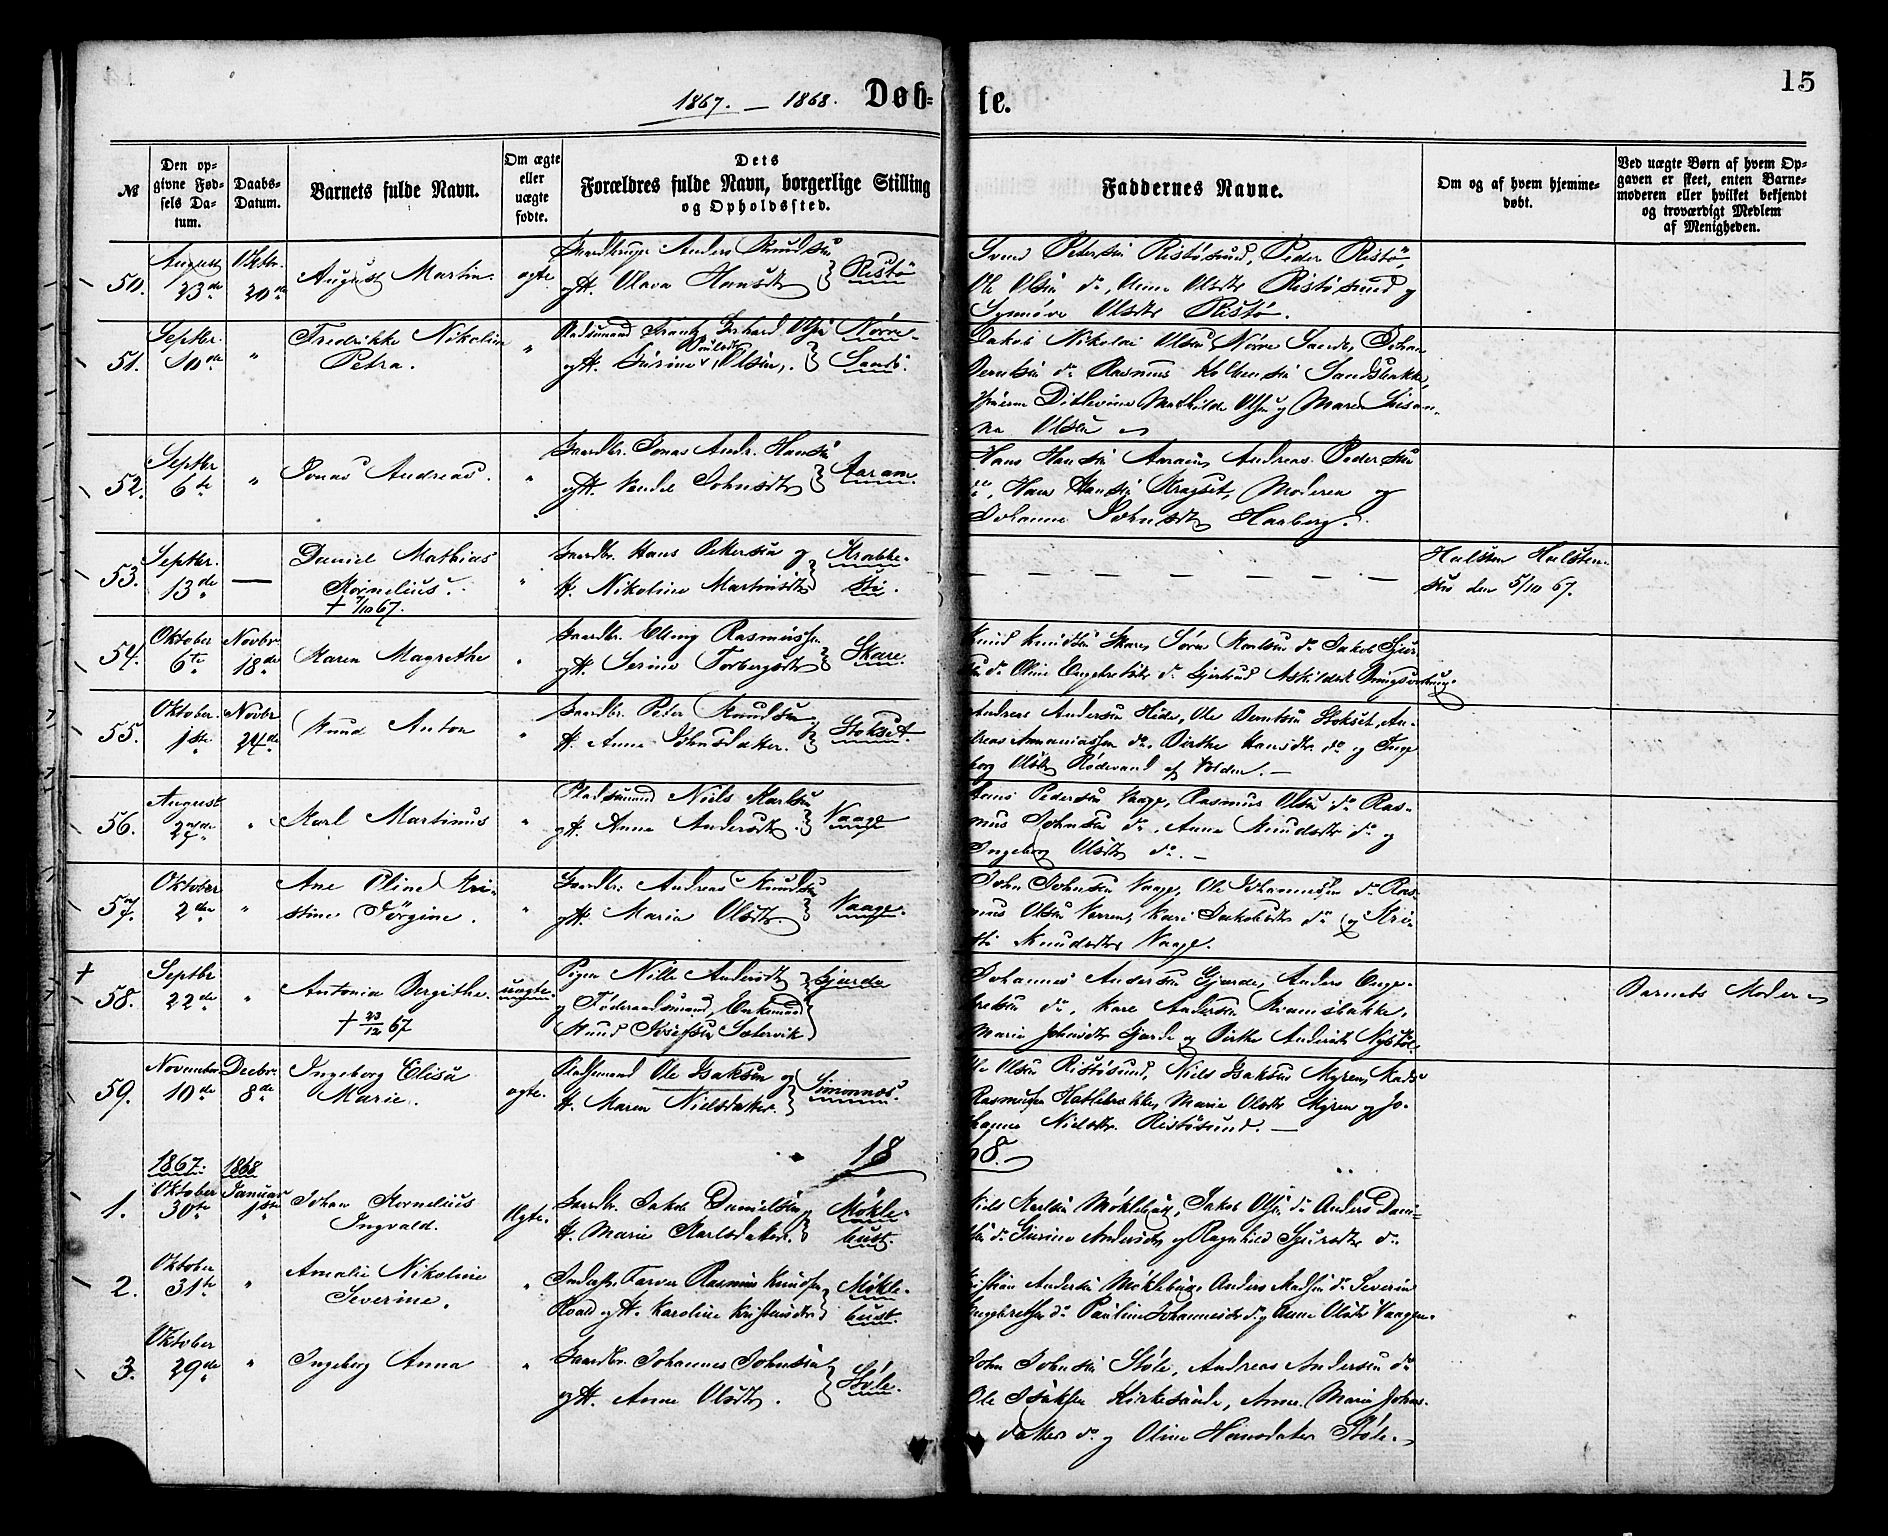 15
1867. — 1868. Døb- te.
№
Den op-
givne Fød-
sels Da-
tum.
Daabs-
Datum.
Barnets fulde Navn.
Om ægte
eller
uægte
fødte.
Dets
Forældres fulde Navn, borgerlige Stilling
og Opholdssted.
Faddernes Navne.
Om og af hvem hjemme-
døbt.
Ved uægte Børn af hvem Op-
gaven er skeet, enten Barne-
moderen eller hvilket bekjendt
og troværdigt Medlem
af Menigheden.
50. August 23de Oktbr. 20de August Martin. ægte
Gaardbruger Anders Knudsen
og H. Olava Hansdtr Ristø
Peder Ristø,
Ole Olsen do, Anne Olsdtr Ristøsund og
Synnøve Olsdtr Ristø.
51. Septbr. 10de " Fredrikke Nikoline
Petra. "
Frantz Gerhard Olsen Nørre
Sande.
Jakob Nikolai Olsen Nørre Sande, Johan
Berntsen do Rasmus
Ditlevine Mathilde Olsen og Maren Susan-
na Olsen
52. Septbr 6te " Jonas Andreas. "
Gaardbr. Jonas Andr. Hansen
og H. Johnsdtr Aaram.
Hans Hansen Aaram, Andreas Pedersen
do, Hans Hansen Kragset, Moderen og
Johanne Johnsdtr Haaberg.
53. Septbr. 13de — Daniel Mathias
Kornelius.
† 7/10 67. "
Gaardbr. Hans Petersen og
H. Nikoline Martinsdtr Krabbe-
sti.
— — — — — — —
Holsten Holsten-
sen den 5/10 67.
54. Oktober 6te Novbr 18de Karen Magrethe "
Gaardbr. Elling Rasmussen
og H. Serine Torbergsdtr Skare.
Knud Knudsen Skare, Søren Karlsen do Jakob Sjur-
sen do Oline Engebretsdtr do Gjertrud Askildsdtr
55. Oktober. 1ste Novbr 24de Knud Anton "
Gaardbr. Peter Knudsen og
H. Anne Johnsdatter. Stokset.
Andreas Andersen Hide, Ole Berntsen Stokset, An-
dreas Annaniassen do. Birthe Hansdtr do og Inge-
borg Olsdtr Rødevand af Volden. —
56. August 27de " Karl Martinus "
Pladsmand Niels Karlsen
og H. Anne Andersdtr. Vaage
Pedersen Vaage, Rasmus Olsen do Ras-
mus Johnsen do, Anne Knudsdtr do og
Ingeborg Olsdtr do. —
57. Oktober 2den " Ane Oline Kri-
stine Jørgine. "
Gaardbr. Andreas Knudsen
og H. Marie Olsdtr. Vaage.
John Johnsen Vaage, Ole Johannessen do Ras-
mus Olsen Kari Jakobsdtr do og Kri-
sti Knudsdtr Vaage.
† 58. Septbr 22de " Antonia Bergithe.
† 23/12 67 uægte
Pigen Nille Andersdtr Gjerde
og Føderaadsmand, Enkemand
Knud Josefsen Sætervik
Johannes Andersen Gjerde, Anders Enge-
bretsen do, Kare Andersen Kvamsbakke,
Marie Johnsdtr Gjerde og Birthe Andersdtr
Barnets Moder
59. November 10de Decbr. 8de Ingeborg Elisa
Marie. ægte.
Pladsmand Ole Isaksen og
H. Maren Nielsdatter. Simonnes.
Ole Olsen Ristøsund, Niels Isaksen Myren, Mads
Rasmussen Hatlebakke, Marie Olsdtr Myren og Jo-
hanne Nielsdtr. Ristøsund. —
18 68.
1867. 1868
1. Oktober 30te Januar 1ste Johan Kornelius
Ingvald. Ægte.
Gaardbr. Jakob Danielsen og
H. Marie Karlsdatter. Møkle-
bust.
Niels Karlsen Møklebust, Jakob Olsen do Anders Dani-
elsen do Gurine Andersdtr og Ragnhild Sjursdtr do
2. Oktober 31te " Amalie Nikoline
Severine. "
Farver Rasmus Knudsen
og H. Karoline Kristensdtr Møkle-
bust.
Kristian Andersen Møklebust, Anders Madsen do Severin
Engebretsen do Pauline Johannesdtr do og Anne Olsdtr Vaagen.
3. Oktober 29de " Ingeborg Anna "
Gaardbr. Johannes Johnsen
og H. Anne Olsdtr. Støle.
John Johnsen Støle, Andreas Andersen do
Ole Isaksen Kirkesande, Anne Marie Johns-
datter do og Oline Hansdatter Støle.